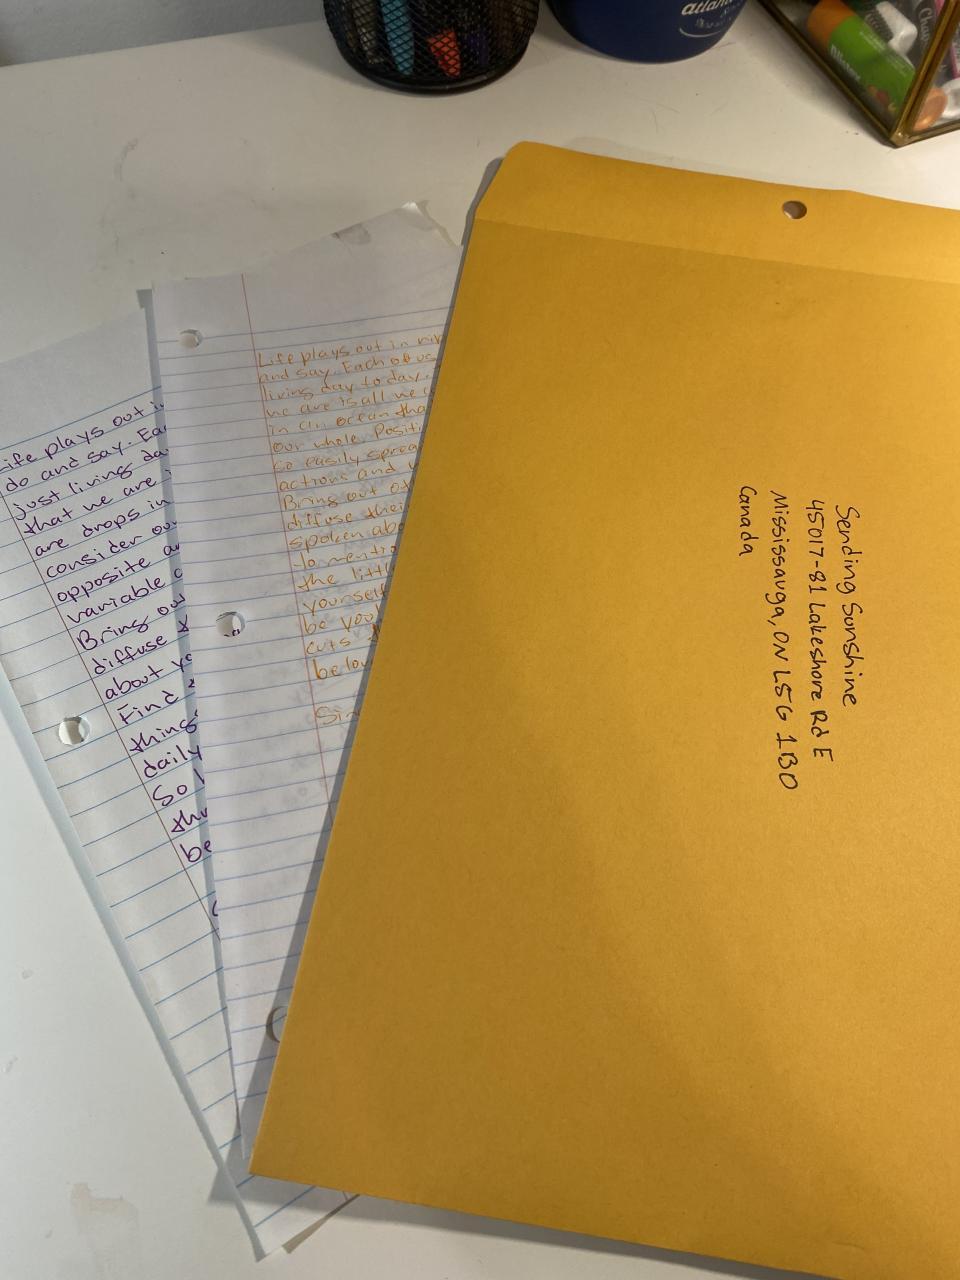 Life plays out i
do and say. Ea
just living da
that we are
are drops in
consider ou
opposite a
variable
Bring ou
diffuse
about yo
Find
things
daily
So
thr
be
Life plays out in
and say. Each of us
living day to day.
we are is all we
in an ocean tha
our whole. Positi
so easily sprea
actions and
Bring out
diffuse thei
spoken abo
to mentio
the littl
yourself
be you
cuts
below
Sin
Sending Sunshine
45017-81 Lakeshore Rd E
Mississauga, ON L5G 1B0
Canada
atlant